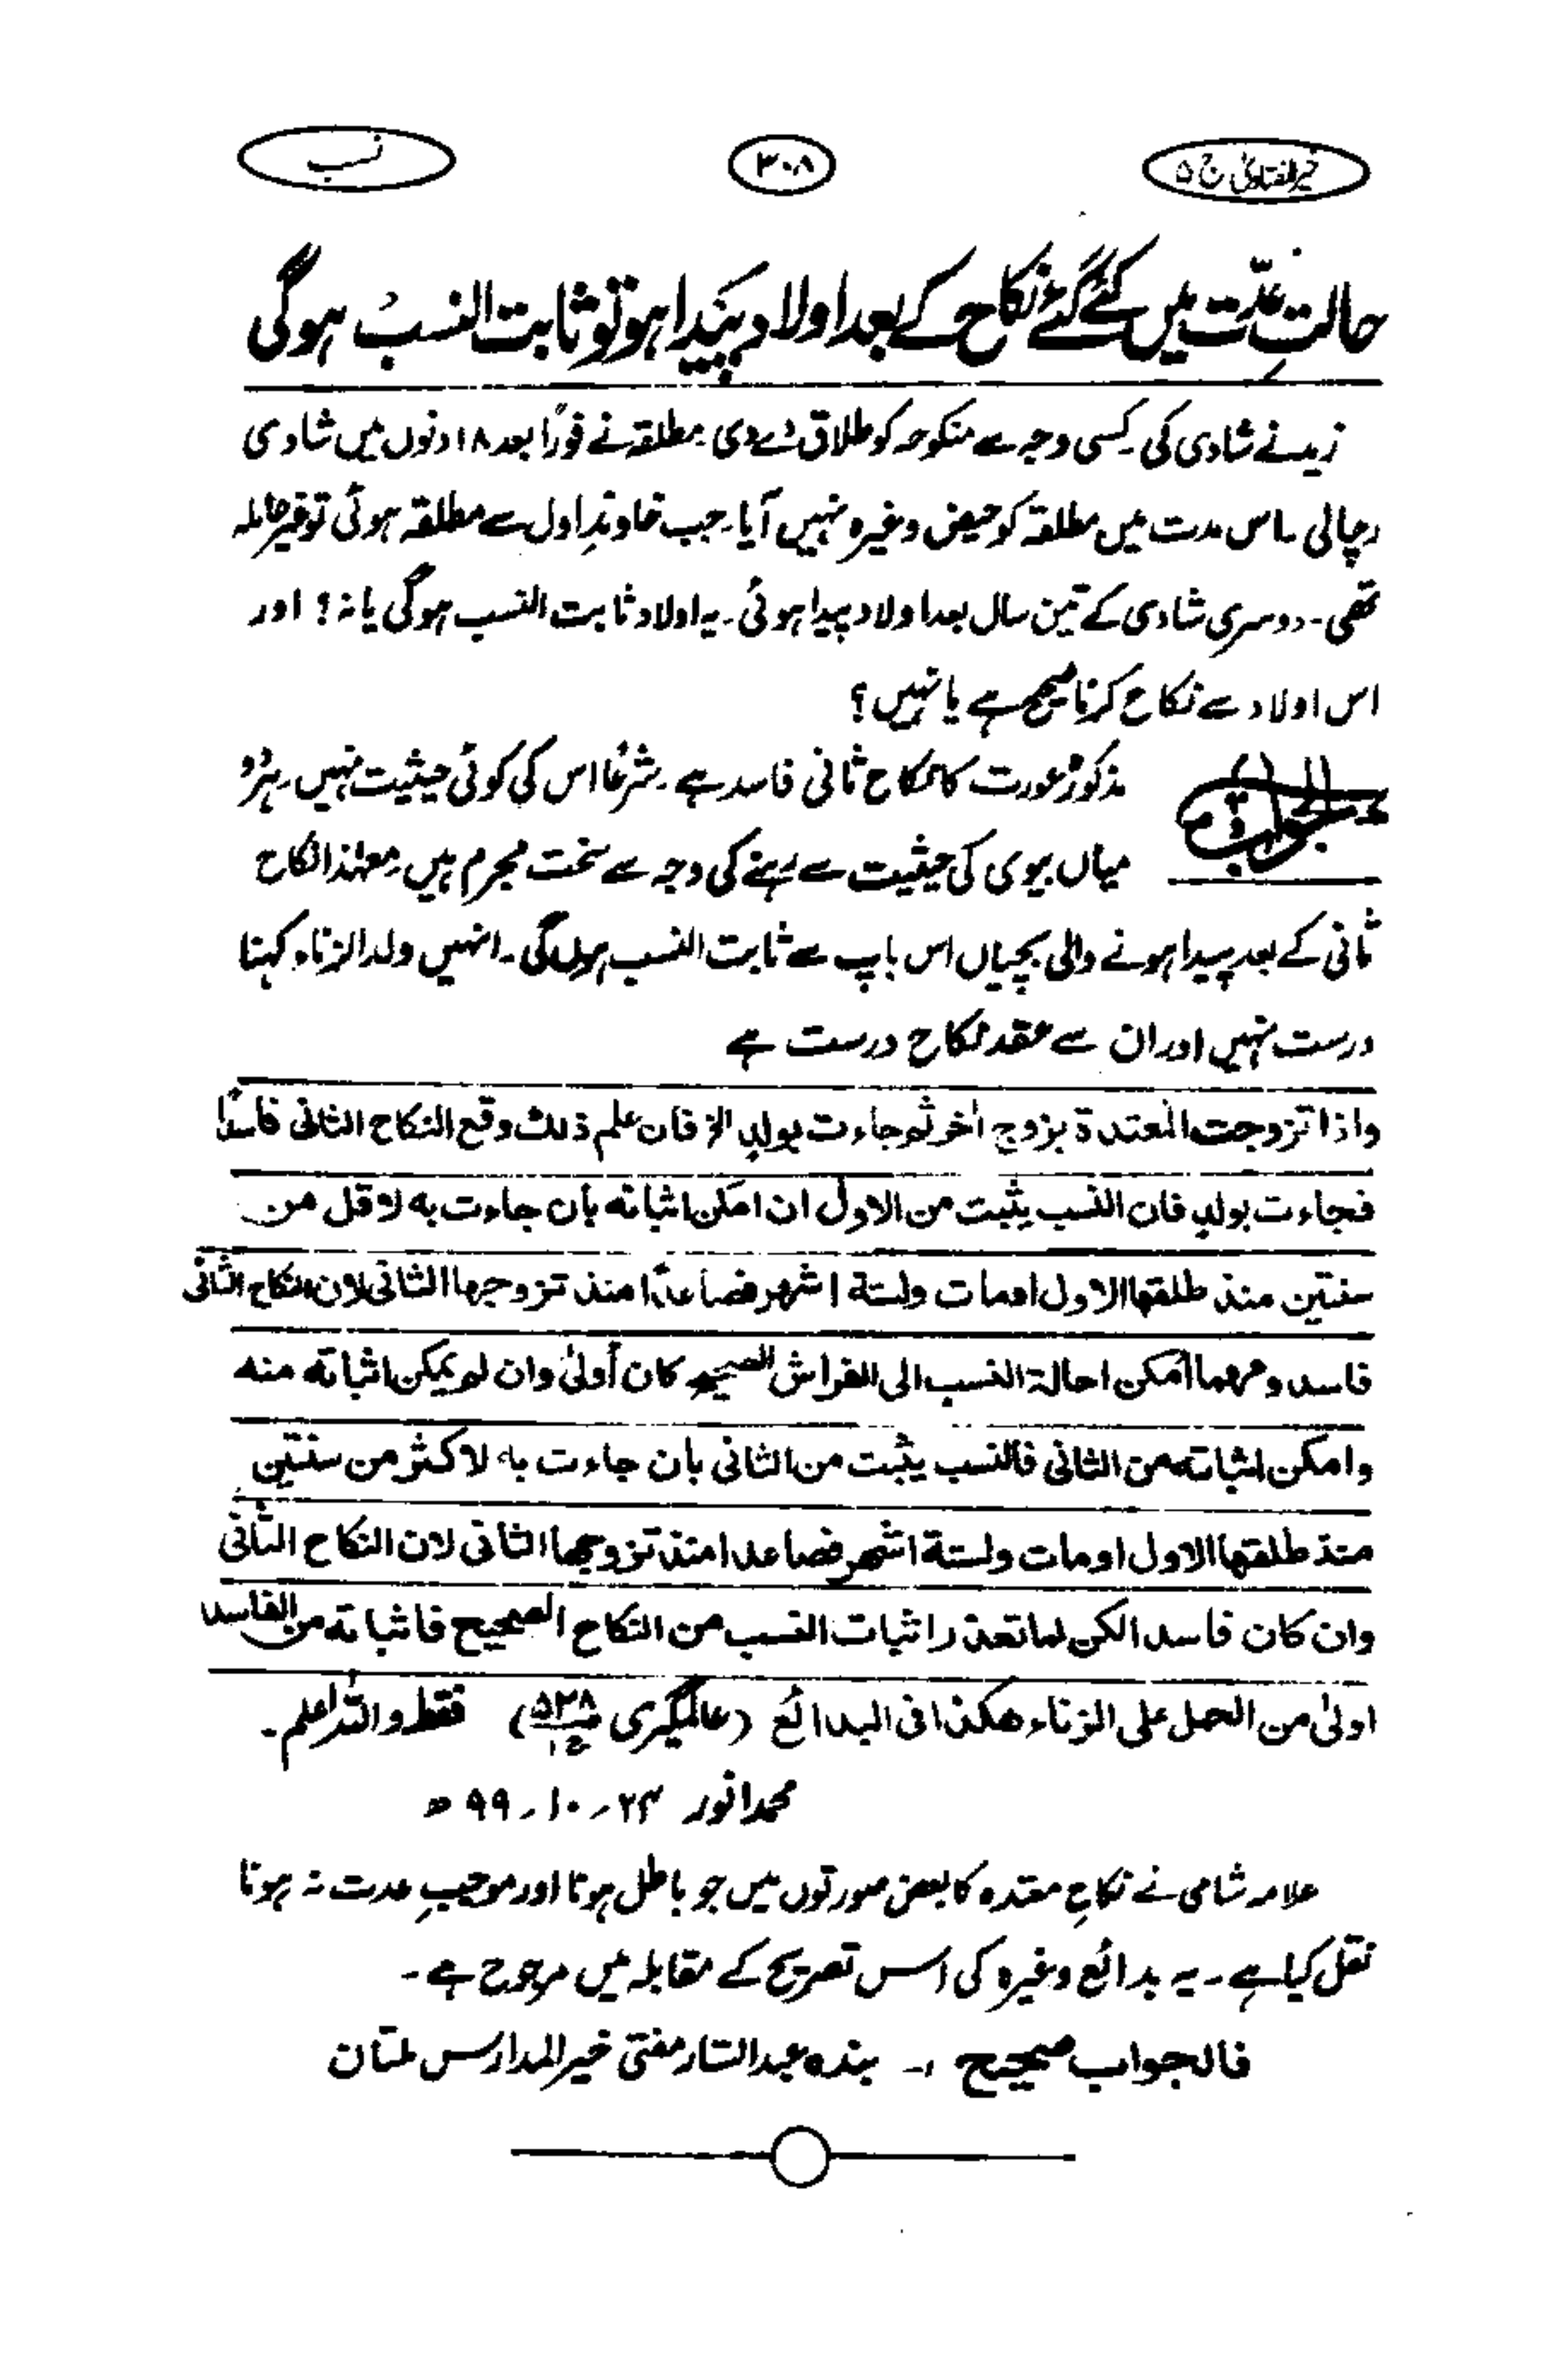 خیر الفتاویٰ ج ۵
۳۰۸
نسب
حالتِ عدّت میں کئے گئے نکاح کے بعد اولاد پیدا ہو تو ثابت النسب ہوگی
زید نے شادی کی۔ کسی وجہ سے منکوحہ کو طلاق دے دی۔ مطلقہ نے فوراً بعد ۱۸ دنوں میں شادی
رچالی۔ اس مدت میں مطلقہ کو حیض وغیرہ نہیں آیا۔ جب خاوندِ اول سے مطلقہ ہوئی تو غیر حاملہ
تھی۔ دوسری شادی کے تین سال بعد اولاد پیدا ہوئی۔ یہ اولاد ثابت النسب ہوگی یا نہ؟ اور
اس اولاد سے نکاح کرنا صحیح ہے یا نہیں؟
الجواب
مذکورہ عورت کا نکاح ثانی فاسد ہے۔ شرعًا اس کی کوئی حیثیت نہیں۔ ہر دو
میاں بیوی کی حیثیت سے رہنے کی وجہ سے سخت مجرم ہیں۔ معہٰذا نکاح
ثانی کے بعد پیدا ہونے والی بچیاں اس باپ سے ثابت النسب ہوں گی۔ انہیں ولد الزناء کہنا
درست نہیں اور ان سے عقد نکاح درست ہے
واذا تزوجت المعتدة بزوج اٰخر ثم جاءت بولدٍ الخ فان علم ذلك وقع النكاح الثانی فاسدًا
فجاءت بولدٍ فان النسب یثبت من الاول ان امکن اثباته بان جاءت به لاقل من
سنتین منذ طلقها الاول او مات ولستة اشهر فصاعدًا منذ تزوجها الثانی لان النکاح الثانی
فاسد ومهما امکن احالة النسب الی الفراش الصحیح کان أولیٰ وان لم یمکن اثباته منه
وامکن اثباته من الثانی فالنسب یثبت من الثانی بان جاءت به لاکثر من سنتین
منذ طلقها الاول او مات ولستة اشهر فصاعدا منذ تزوجها الثانی لان النکاح الثانی
وان کان فاسدا لکن لما تعذر اثبات النسب من النکاح الصحیح فاثباته من الفاسد
اولیٰ من الحمل علی الزناء هکذا فی البدائع (عالمگیری ص۵۳۸ ج۱) فقط واللہ اعلم۔
محمد انور ۲۳۔۱۰۔۹۹ ھ
علامہ شامی نے نکاحِ معتدہ کا بعض صورتوں میں جو باطل ہونا اور موجبِ عدت نہ ہونا
نقل کیا ہے۔ یہ بدائع وغیرہ کی اس تصریح کے مقابلہ میں مرجوح ہے۔
فالجواب صحیح :۔ بندہ عبدالستار مفتی خیرالمدارس ملتان